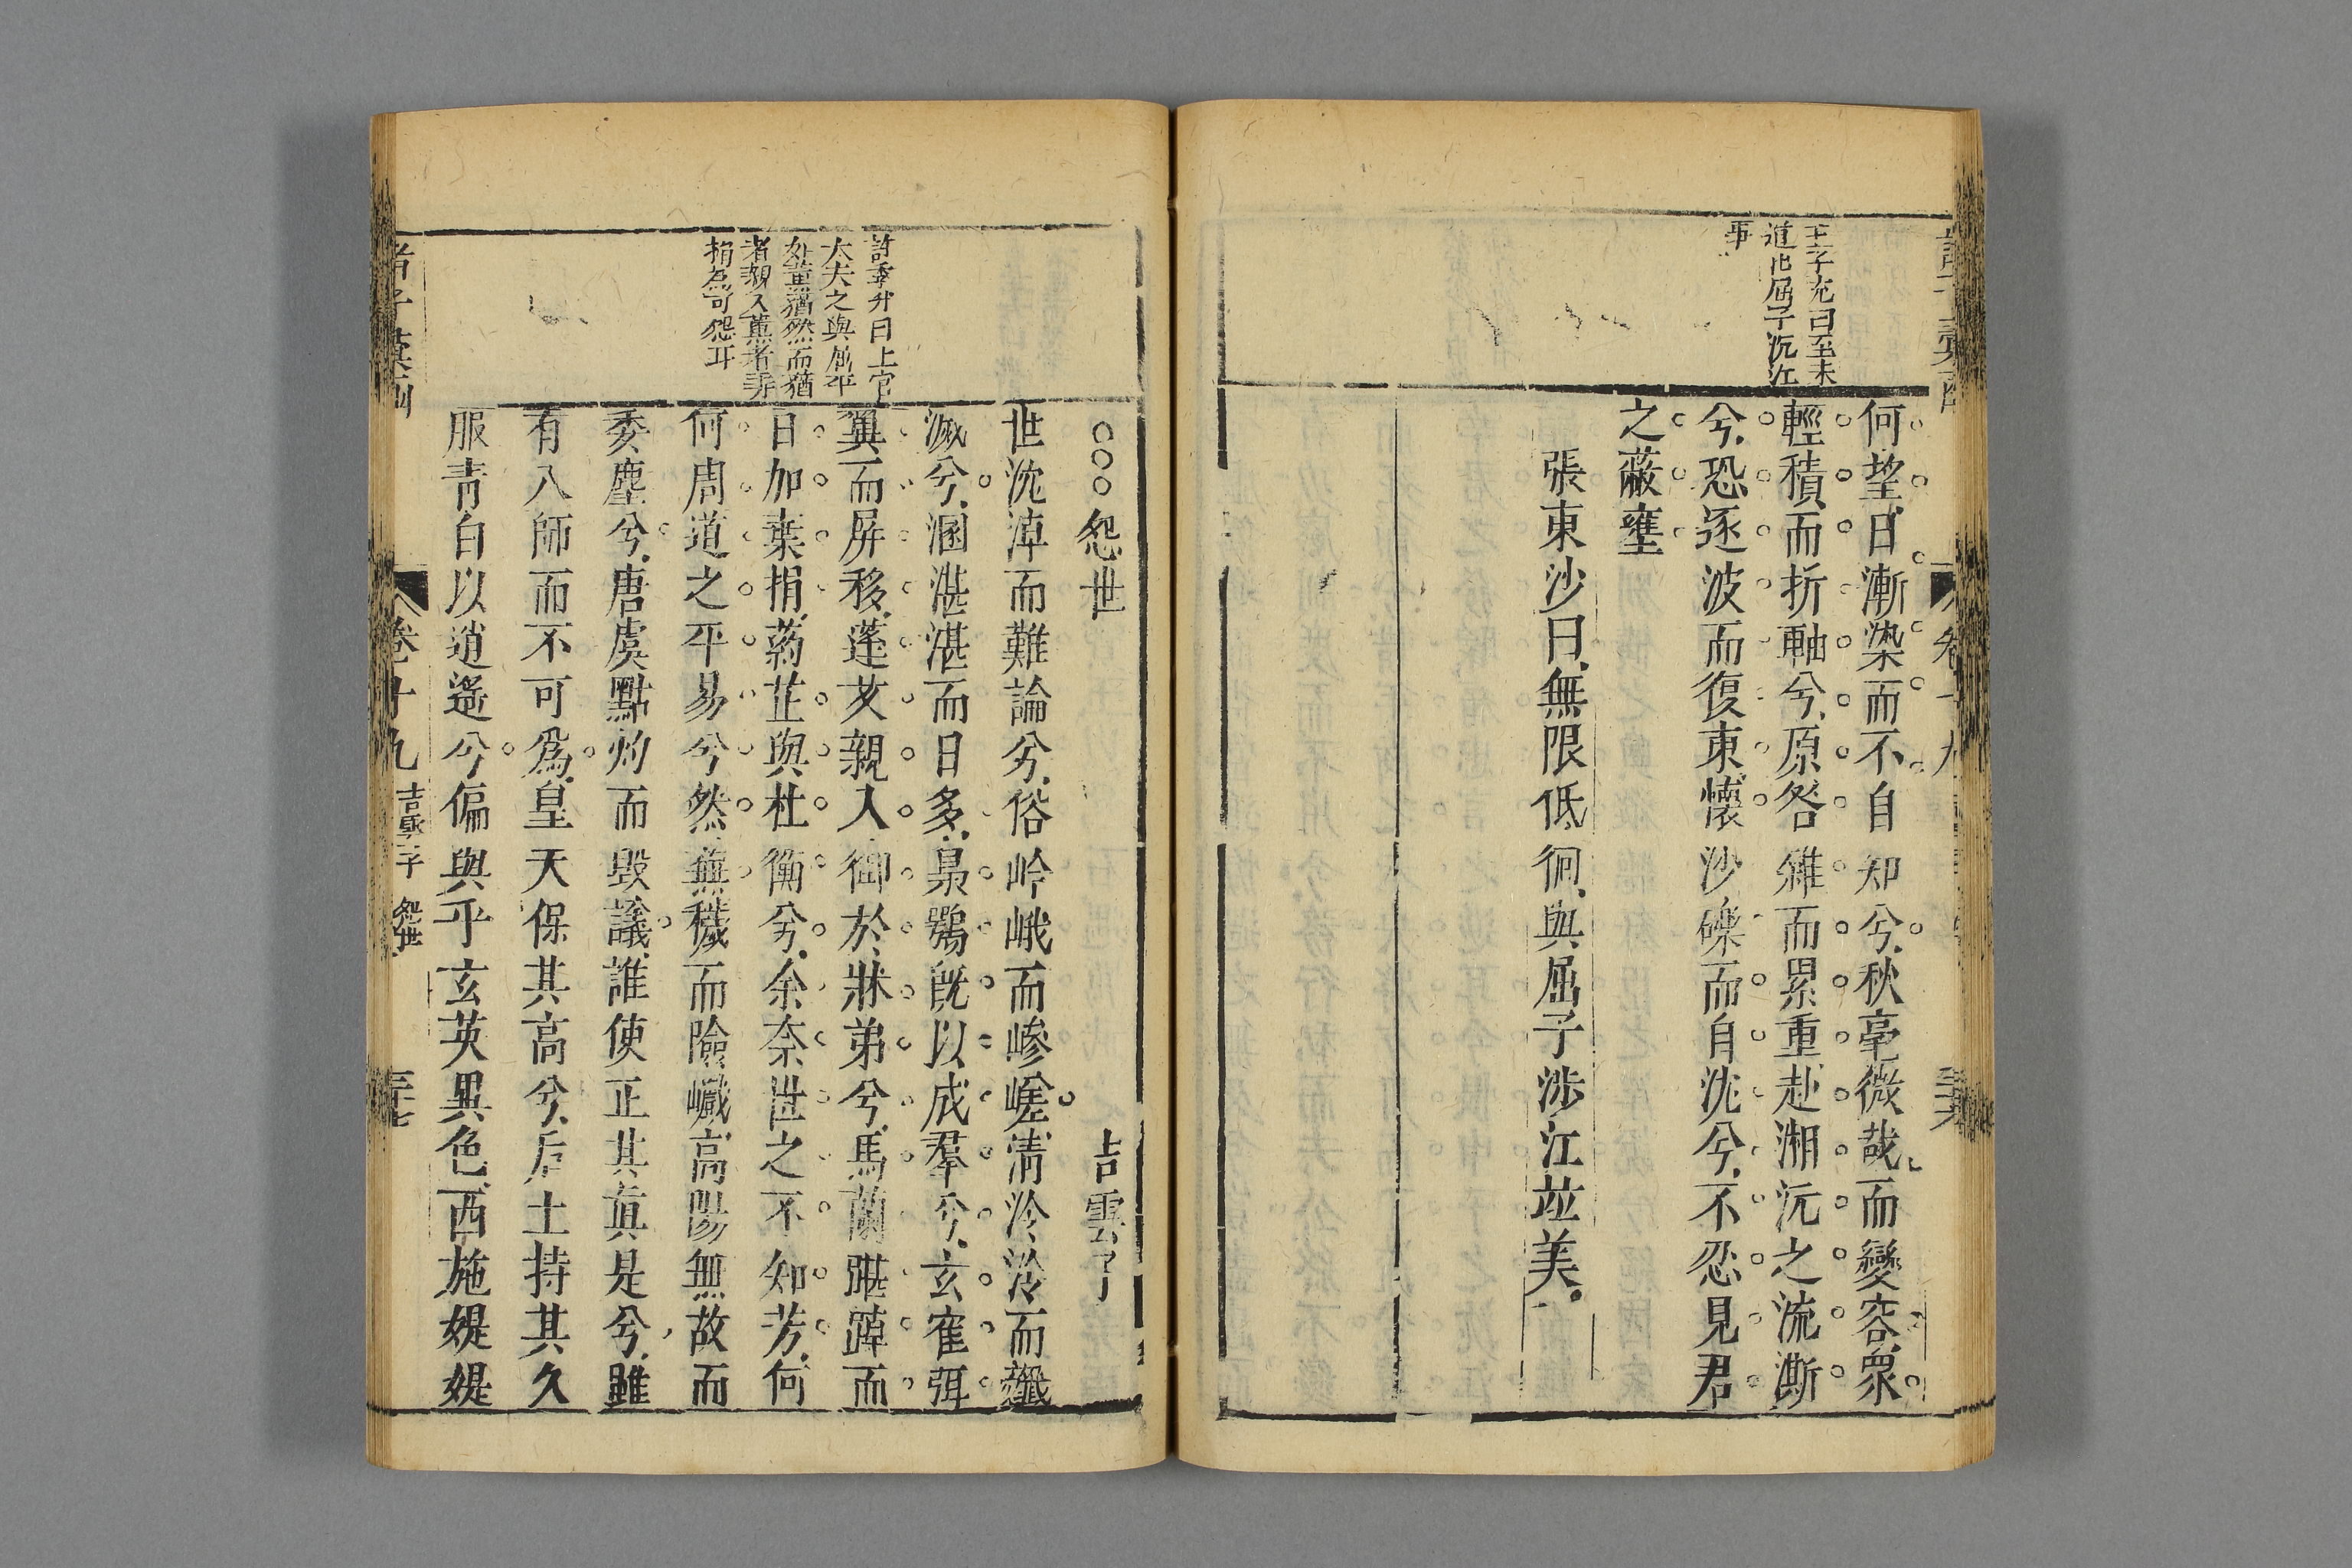 王子充曰至末
道出屈子沉江
事
何望日漸染而不自知兮秋毫微哉而變容衆
輕積而折軸兮原咎雜而累重赴湘沅之流澌
兮恐逐波而復東懷沙礫而自沈兮不忍見君
之蔽壅
張東沙曰無限低徊與屈子涉江並美
卷十九
許季升曰上官
大夫之與屈平
如薰猶然而猶
者親入薰者弃
捐爲可怨耳
○○○怨世
吉雲子
世沈淖而難論兮俗岒峨而嵾嵯淸泠泠而殲
滅兮溷湛湛而日多梟鴞旣以成羣兮玄寉弭
翼而屏移蓬艾親入御於牀笫兮馬蘭踸踔而
日加葉捐葯芷與杜衡兮余奈世之不知芳何
何周道之平易兮然蕪穢而險巇高陽無故而
委塵兮唐虞點灼而毀議誰使正其眞是兮雖
有八師而不可爲皇天保其高兮后土持其久
服靑白以逍遙兮偏與乎玄英異色西施媞媞
卷十九 吉雲子 怨世